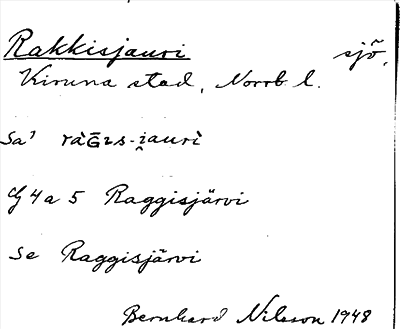 Rakkisjauri sjö,
Kiruna stad, Norrb. l.
Sa' ràG̅ɪs-i̯aurì
G4a5 Raggisjärvi
Se Raggisjärvi
Bernhard Nilsson 1948